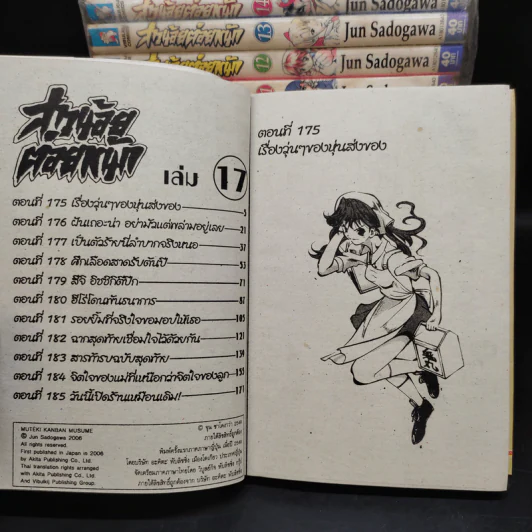 Jun Sadogawa
สาวน้อยต่อยหนัก 13 Jun Sadogawa
12 Jun Sadogawa
Jun Sadogawa
สาวน้อย
ต่อยหนัก
เล่ม 17
ตอนที่ 175 เรื่องวุ่นๆของหุ่นส่งของ 5
ตอนที่ 176 ฝันเถอะน่า อย่ามัวแต่พล่ามอยู่เลย 21
ตอนที่ 177 เป็นตัวร้ายนี่ลำบากจริงหนอ 37
ตอนที่ 178 ศึกเลือดสาดรับต้นปี 53
ตอนที่ 179 71
ตอนที่ 180 ฮีโร่โดนทัณฑนาการ 87
ตอนที่ 181 รอยยิ้มที่จริงใจขอมอบให้เธอ 105
ตอนที่ 182 ฉากสุดท้ายเชื่อมใจไว้ด้วยกัน 121
ตอนที่ 183 สารท้ารบฉบับสุดท้าย 139
ตอนที่ 184 จิตใจของแม่ที่เหนือกว่าจิตใจของลูก 155
ตอนที่ 185 วันนี้เปิดร้านเหมือนเดิม! 171
MUTEKI KANBAN MUSUME
© Jun Sadogawa 2006
All rights reserved.
First published in Japan in 2006
by Akita Publishing Co., Ltd.
Thai translation rights arranged
with Akita Publishing Co., Ltd.
And Vibulkij Publishing Group.
ตอนที่ 175
เรื่องวุ่นๆของหุ่นส่งของ